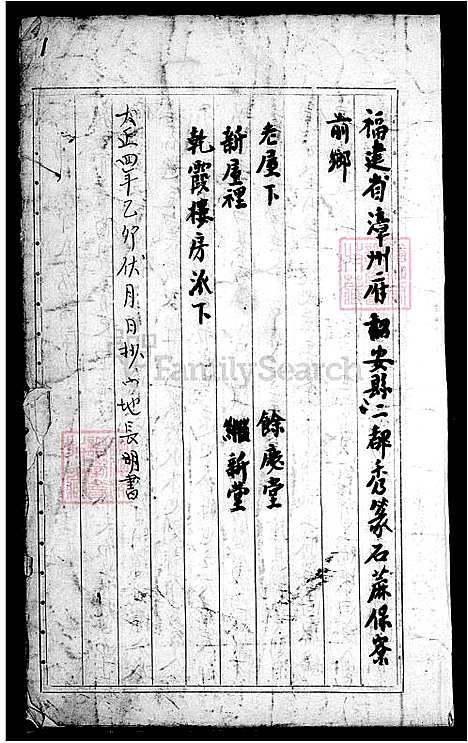 福建省漳州府詔安縣二都秀篆石蔴保寨
前鄉
老屋下 餘慶堂
新屋裡 繼新堂
乾霞樓房派下
大正四年乙卯伏月日抄 地長明書
1
FamilySearch